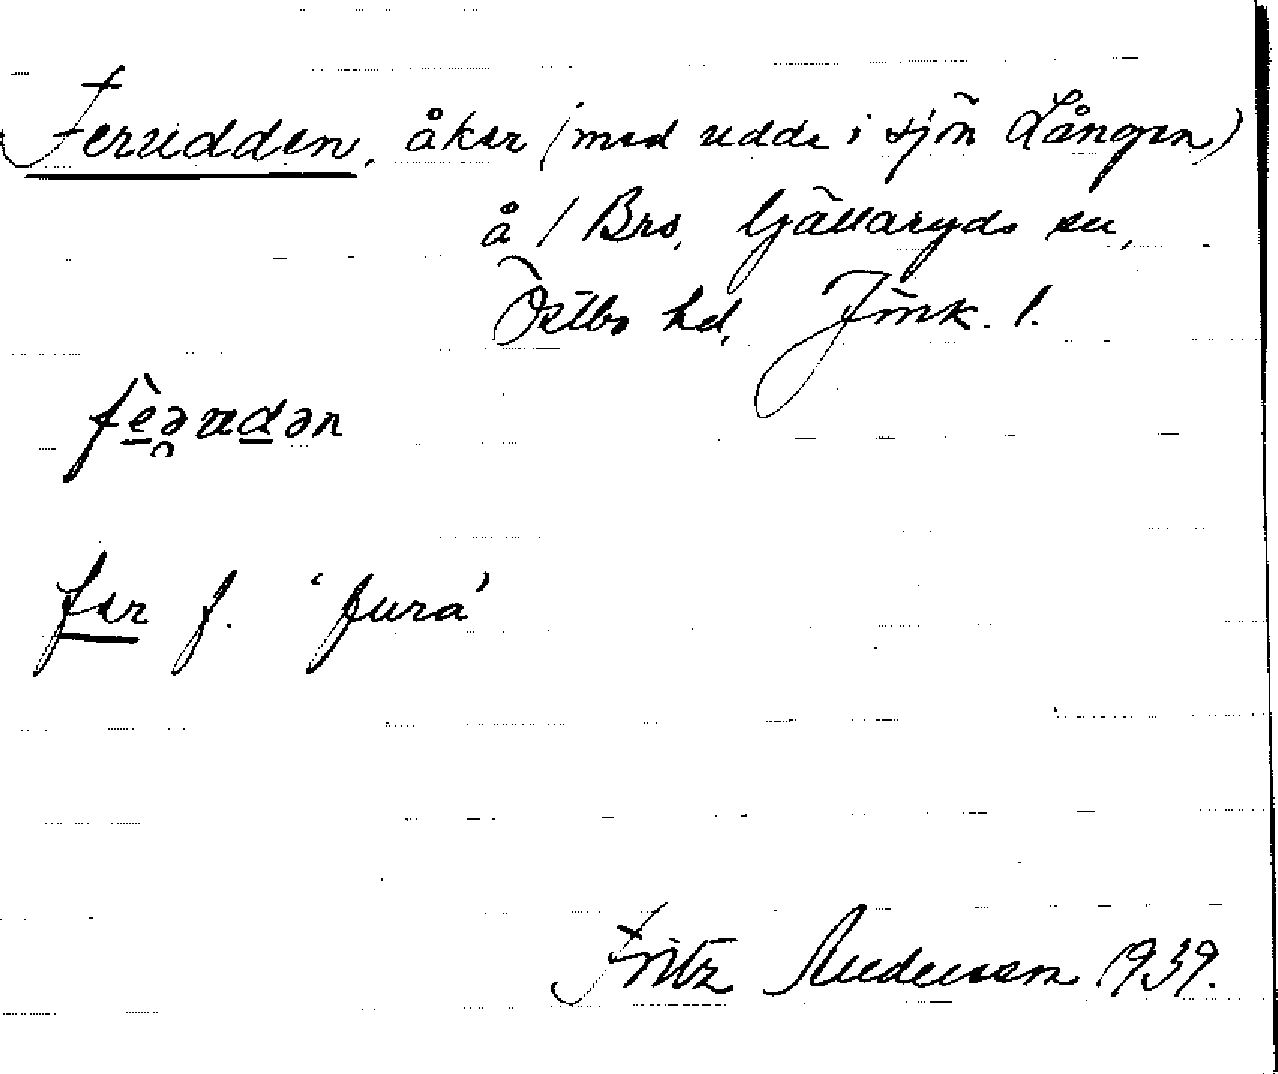 Ferudden, åker (med udde i sjön Lången)
å / Bro, Gällaryds sn,
Östbo hd, Jönk. l.
fèə̯rudən
fer f. 'fura'
Fritz Andersson 1939.